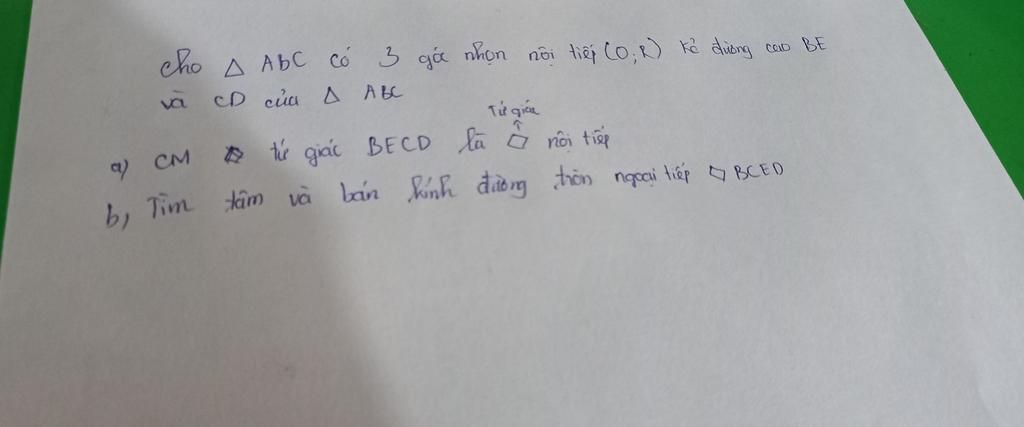 Cho △ ABC có 3 góc nhọn nội tiếp (O;R) kẻ đường cao BE
và CD của △ ABC
Tứ giác
↑
a) CM tứ giác BECD là ▱ nội tiếp
b, Tìm tâm và bán kính đường tròn ngoại tiếp ▱ BCED